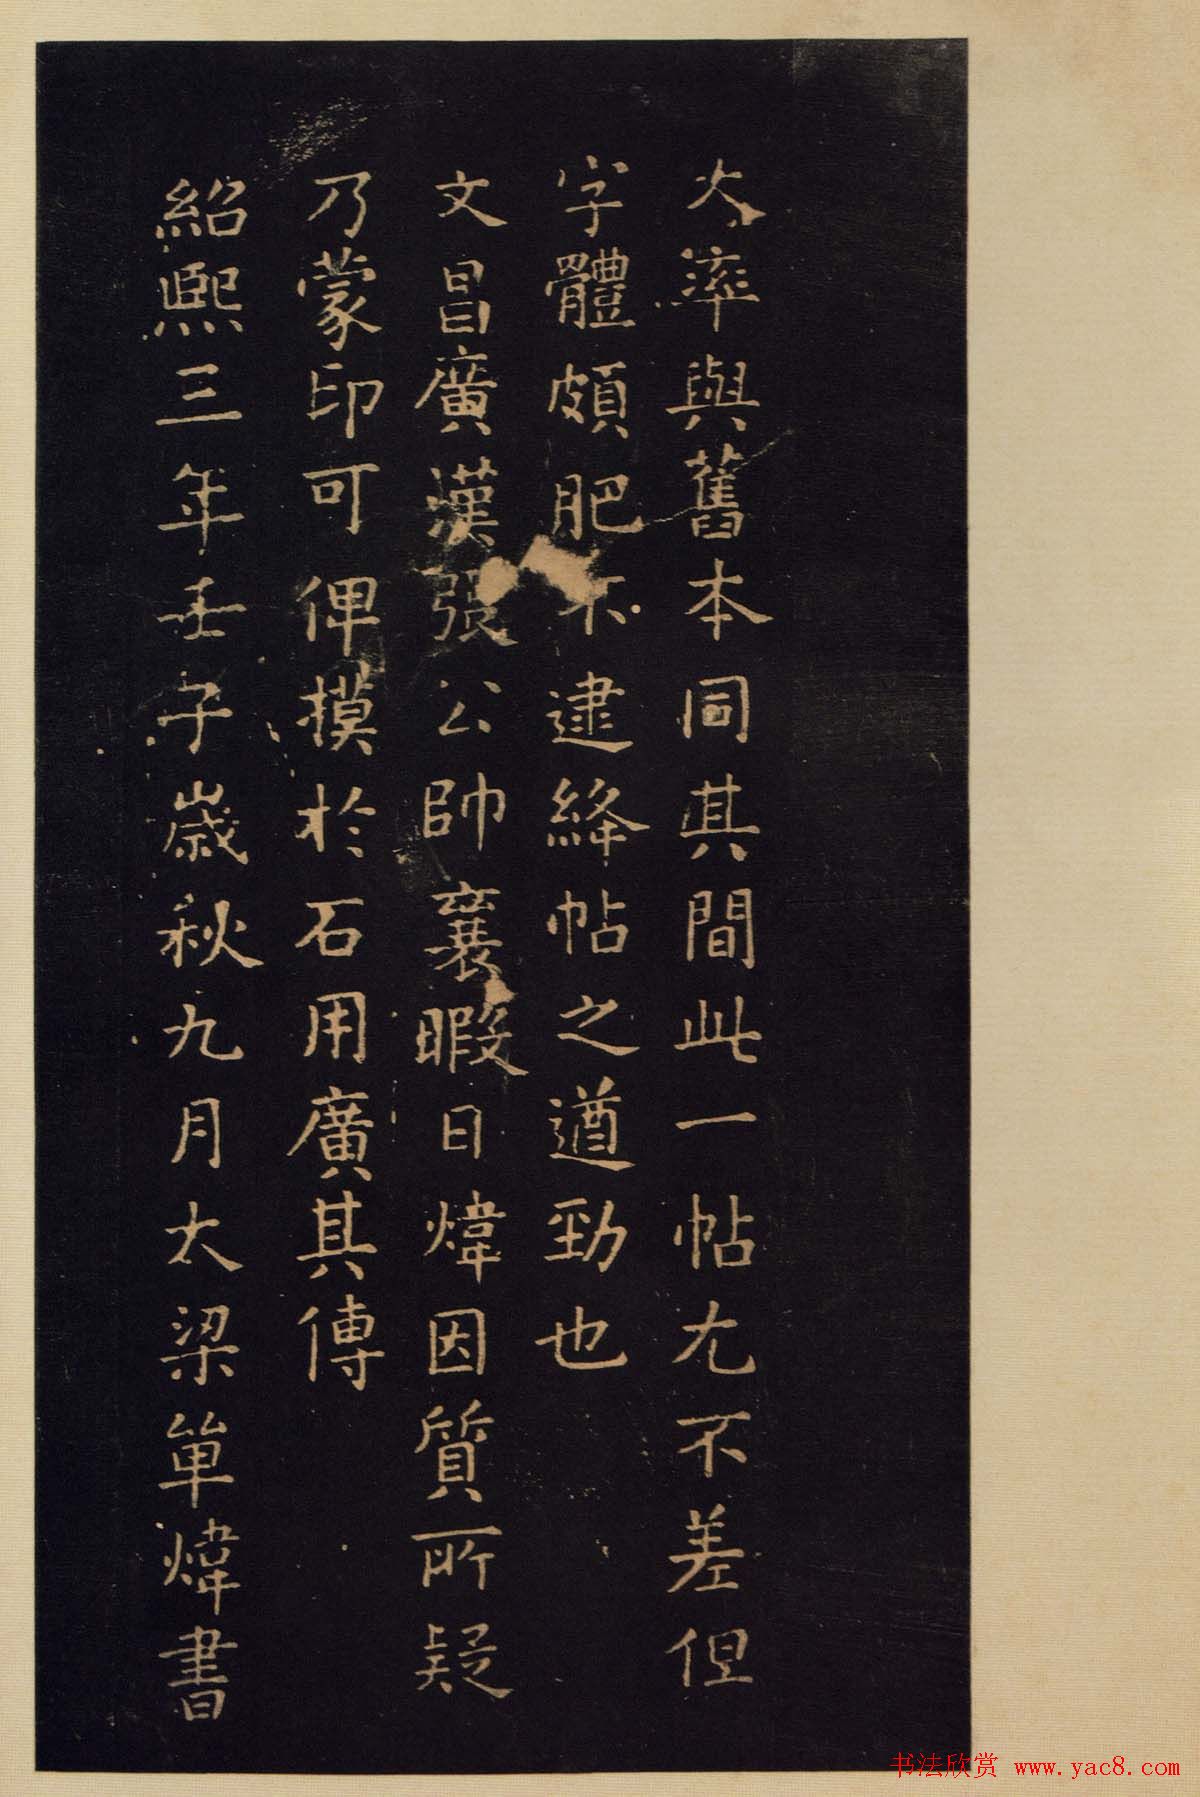 大率與舊本同其間此一帖尤不差但
字體頗肥不逮絳帖之遒勁也
文昌廣漢張公帥襄暇日煒因質所疑
乃蒙印可俾摸於石用廣其傳
紹熙三年壬子歲秋九月大梁單煒書
书法欣赏 www.yac8.com